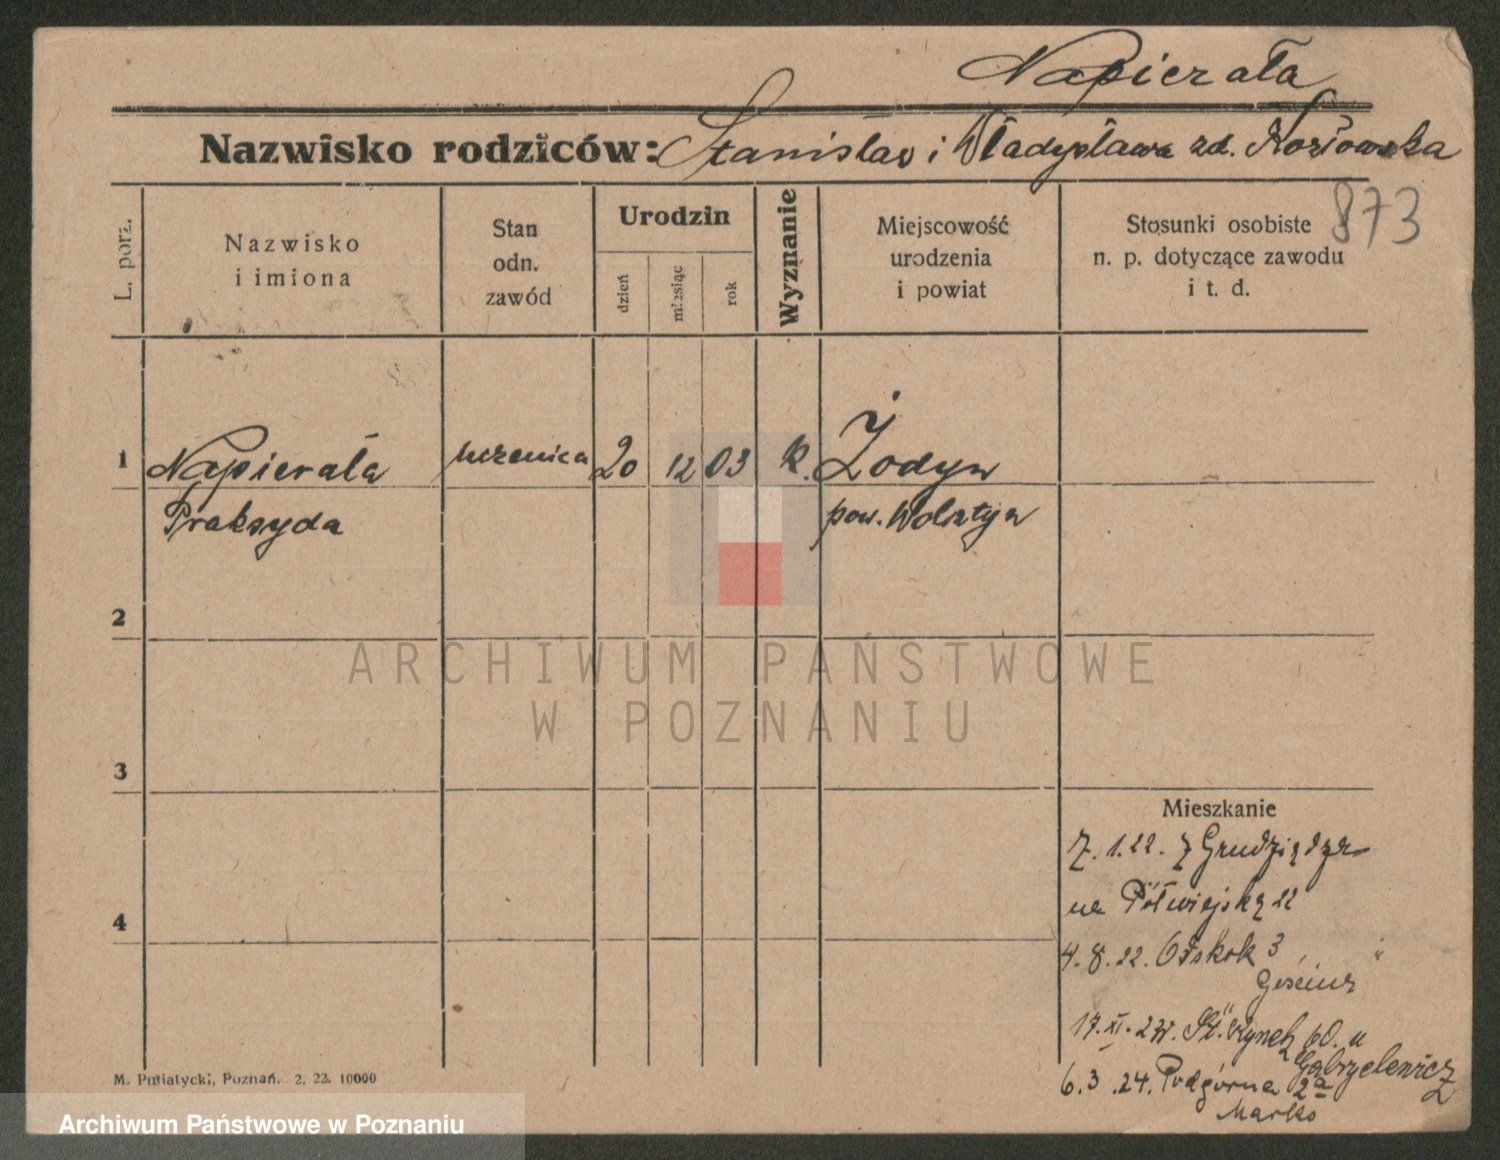 Napierała
Nazwisko rodziców: Stanisław i Władysława zd. Kozłowska
873
L. porz.
Nazwisko
i imiona
Stan
odn.
zawód
Urodzin
dzień
miesiąc
rok
Wyznanie
Miejscowość
urodzenia
i powiat
Stosunki osobiste
n. p. dotyczące zawodu
i t. d.
1 Napierała uczenica 20 12 03 k. Żodyn
Praksyda pow. Wolsztyn
2
3
4
Mieszkanie
7. 1.22. z Grudziądza
na Półwiejską 22
4. 8. 22. 3
17. XI. 22. St. Rynek 60. u
Gabryelewicz
6. 3. 24. Podgórna 2a
Marko
M. Putiatycki, Poznań. 2. 22. 10000
ARCHIWUM PAŃSTWOWE
W POZNANIU
Archiwum Państwowe w Poznaniu